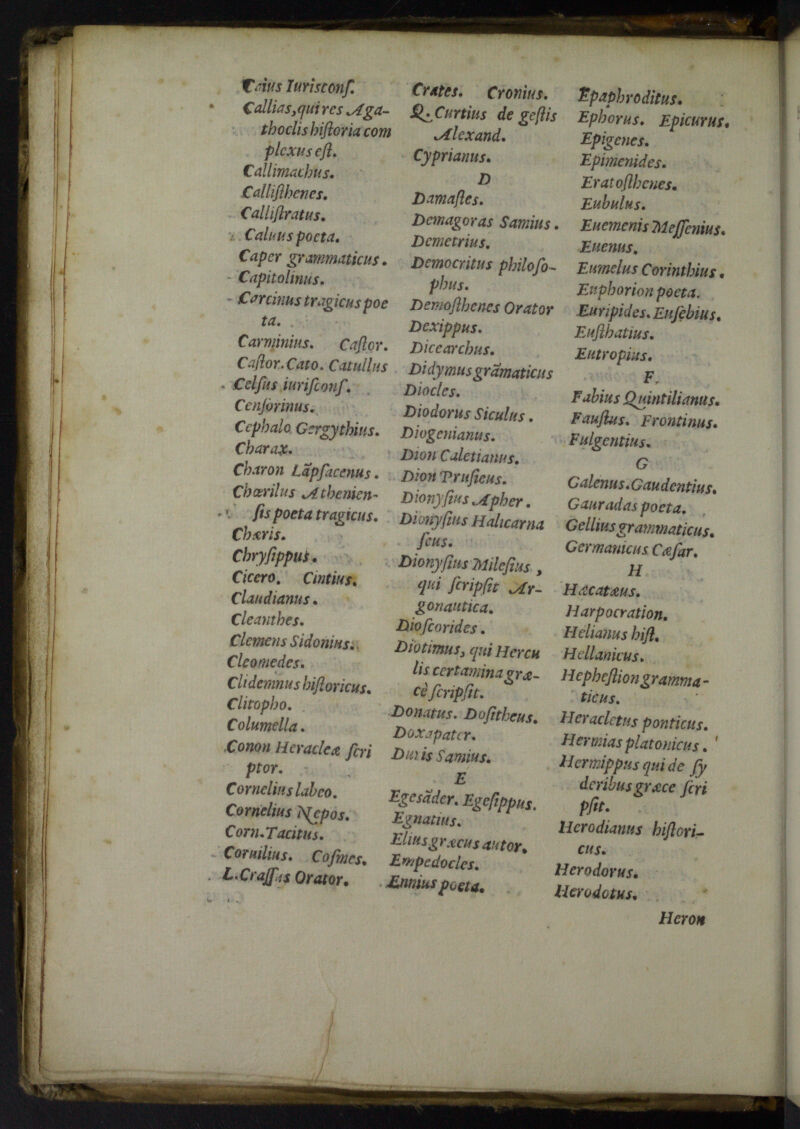 Caius Iurisconſ.
Callias, qui res Aga-
thoclis hiſtoria com
plexus eſt.
Callimachus.
Calliſthenes.
Calliſtratus.
Caluus poeta.
Caper grammaticus.
Capitolinus.
Carcinus tragicus poe
ta.
Carminius. Caſtor.
Caſtor. Cato. Catullus
Celſus iuriſconſ.
Cenſorinus.
Cephalo Gergythius.
Charax.
Charon Lãpſacenus.
Chœrilus Athenien-
ſis poeta tragicus.
Chæris.
Chryſippus.
Cicero. Cintius.
Claudianus.
Cleanthes.
Clemens Sidonius.
Cleomedes.
Clidemnus hiſtoricus.
Clitopho.
Columella.
Conon Heracleæ ſcri
ptor.
Cornelius labeo.
Cornelius Nepos.
Corn. Tacitus.
Cornilius. Coſmes.
L. Craſſus Orator.
Crates. Cronius.
Q. Curtius de geſtis
Alexand.
Cyprianus.
D
Damaſtes.
Demagoras Samius.
Demetrius.
Democritus philoſo-
phus.
Demoſthenes Orator
Dexippus.
Dicearchus.
Didymus grãmaticus
Diocles.
Diodorus Siculus.
Diogenianus.
Dion Caletianus.
Dion Pruſieus.
Dionyſius Apher.
Dionyſius Halicarna
ſeus.
Dionyſius Mileſius,
qui ſcripſit Ar-
gonautica.
Dioſcorides.
Diotimus, qui Hercu
lis certamina græ-
cè ſcripſit.
Donatus. Doſitheus.
Doxapater.
Duris Samius.
E
Egesãder. Egeſippus.
Egnatius.
Elius græcus autor.
Empedocles.
Ennius poeta.
Epaphroditus.
Ephorus. Epicurus.
Epigenes.
Epimenides.
Eratoſthenes.
Eubulus.
Euemenis Meſſenius.
Euenus.
Eumelus Corinthius.
Euphorion poeta.
Euripides. Euſebius.
Euſthatius.
Eutropius.
F.
Fabius Quintilianus.
Fauſtus. Frontinus.
Fulgentius.
G
Galenus. Gaudentius.
Gauradas poeta.
Gellius grammaticus.
Germanicus Cæſar.
H
Hæcatæus.
Harpocration.
Helianus hiſt.
Hellanicus.
Hepheſtion gramma-
ticus.
Heracletus ponticus.
Hermias platonicus.
Hermippus qui de ſy
deribus græce ſcri
pſit.
Herodianus hiſtori-
cus.
Herodorus.
Herodotus.
Heron